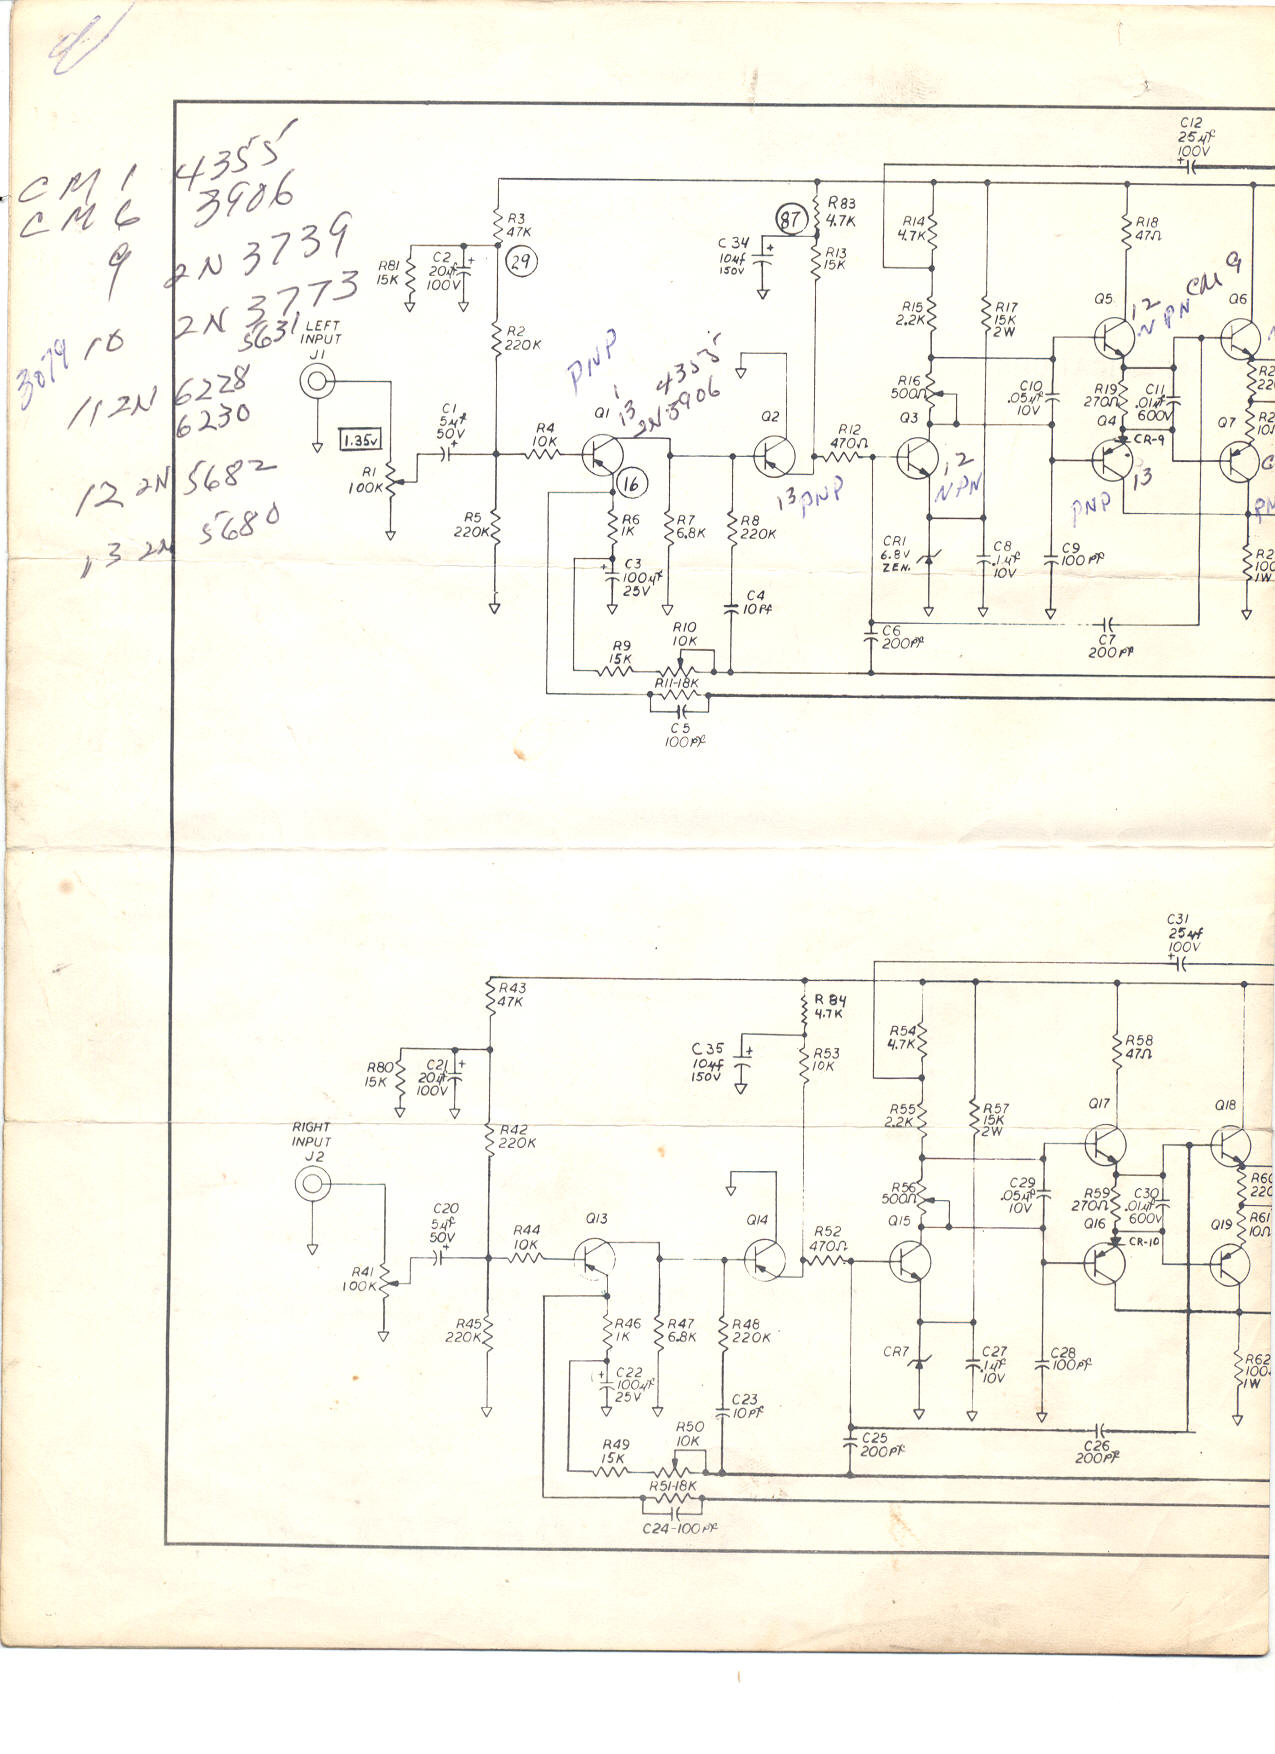 CM 1 4355
CM 6 3906
9 2N 3739
10 2N 3773
3079
5631
11 2N 6228
6230
12 2N 5682
13 2N 5680
C12
25µf
100V
R3
47K
29
R81
15K
C2
20µf
100V
R2
220K
LEFT
INPUT
J1
1.35V
R1
100K
C1
5µf
50V
R4
10K
R5
220K
PNP
1
13
4355
2N 3906
Q1
16
R6
1K
C3
100µf
25V
R7
6.8K
R8
220K
C4
10Pf
R9
15K
R10
10K
R11-18K
C5
100Pf
87
R83
4.7K
C34
10µf
150V
R13
15K
Q2
13 PNP
R12
470Ω
C6
200pf
R14
4.7K
R15
2.2K
R16
500Ω
Q3
12
NPN
CR1
6.8V
ZEN.
R17
15K
2W
C8
.1µf
10V
C10
.05µf
10V
C9
100pf
C7
200pf
R18
47Ω
Q5
12
NPN
CM 9
R19
270Ω
C11
.01µf
600V
Q4
CR-9
13
PNP
Q6
Q7
1W
C31
25µf
100V
R43
47K
R80
15K
C21
20µf
100V
R42
220K
RIGHT
INPUT
J2
R41
100K
C20
5µf
50V
R44
10K
R45
220K
Q13
R46
1K
C22
100µf
25V
R47
6.8K
R48
220K
C23
10Pf
R49
15K
R50
10K
R51-18K
C24-100Pf
R84
4.7K
C35
10µf
150V
R53
10K
Q14
R52
470Ω
C25
200pf
R54
4.7K
R55
2.2K
R56
500Ω
Q15
CR7
R57
15K
2W
C27
.1µf
10V
C29
.05µf
10V
C28
100pf
C26
200pf
R58
47Ω
Q17
R59
270Ω
C30
.01µf
600V
Q16
CR-10
Q18
R60
220
R61
10Ω
Q19
R62
100
1W